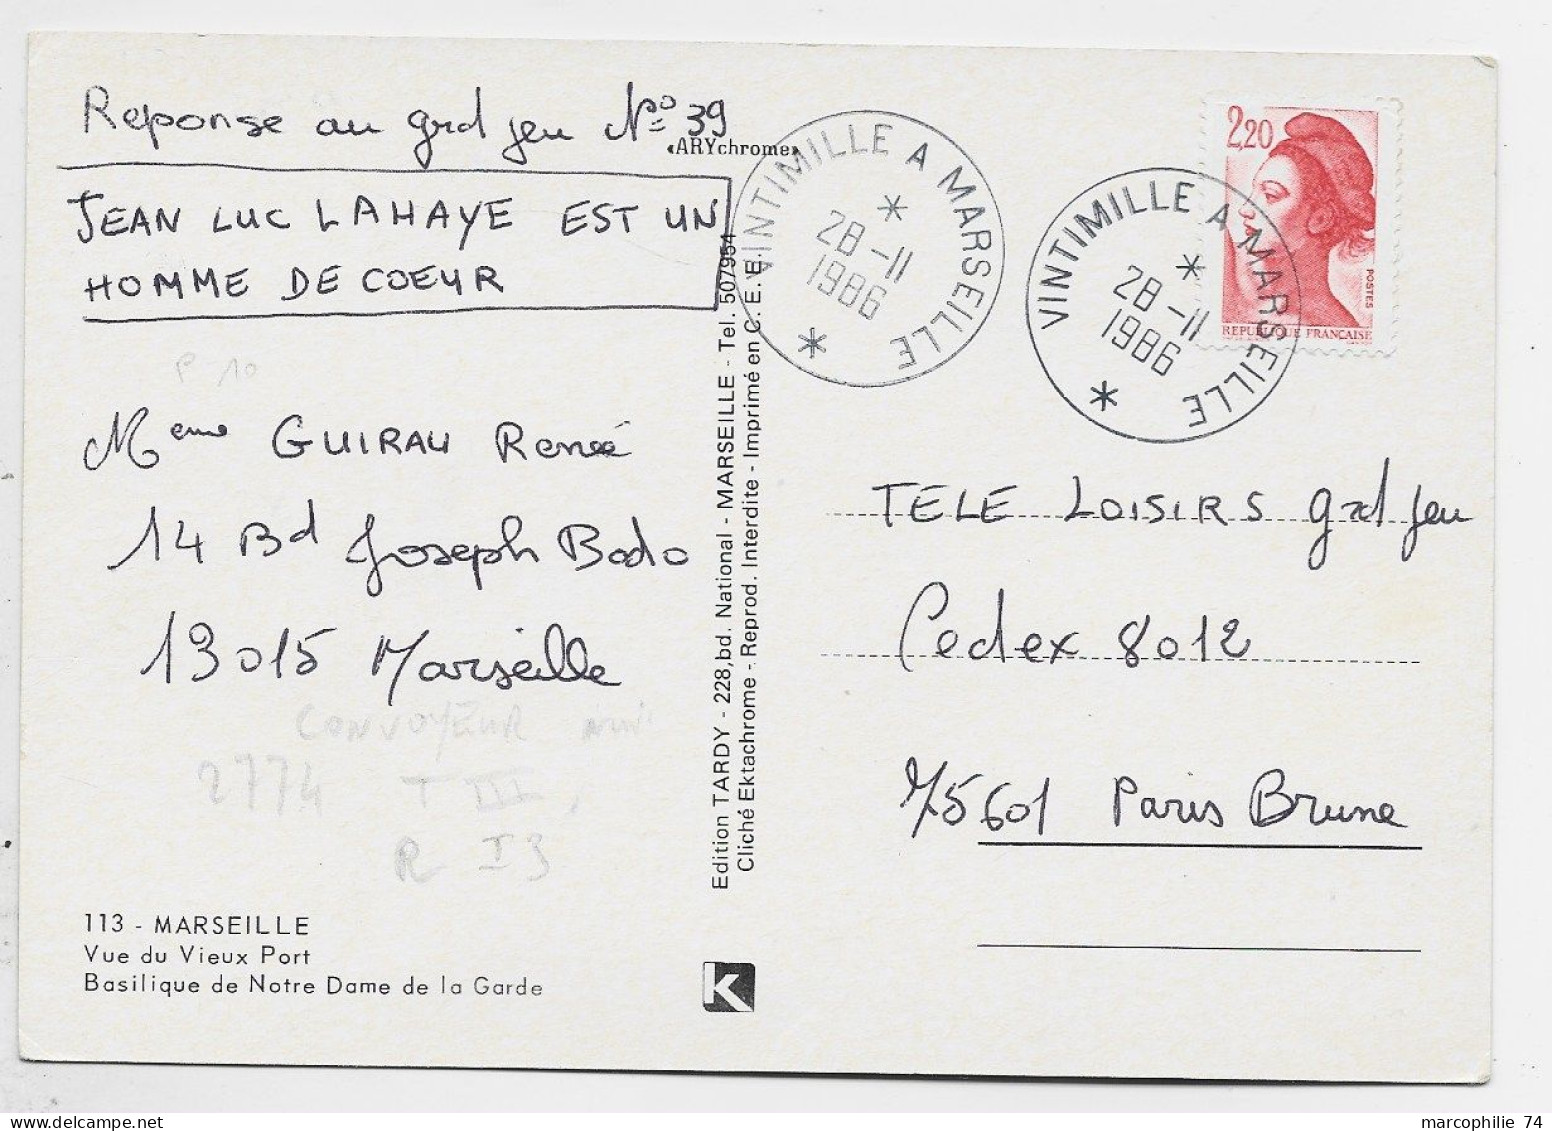 Reponse au grd jeu Nº 39
«ARYchrome»
JEAN LUC LAHAYE EST UN
HOMME DE COEUR
P 10
Meme GUIRAU Reneé
14 Bd Joseph Bodo
13015 Marseille
CONVOYEUR
2774 T III
R I 3
113 - MARSEILLE
Vue du Vieux Port
Basilique de Notre Dame de la Garde
Edition TARDY - 228,bd. National - MARSEILLE - Tel. 507954
Cliché Ektachrome - Reprod. Interdite - Imprimé en C. E. E.
K
VINTIMILLE A MARSEILLE
28 - 11
1986
VINTIMILLE A MARSEILLE
28 - 11
1986
2,20
POSTES
REPUBLIQUE FRANÇAISE
TELE LOISIRS grd jeu
Cedex 8012
75601 Paris Brune
marcophilie 74